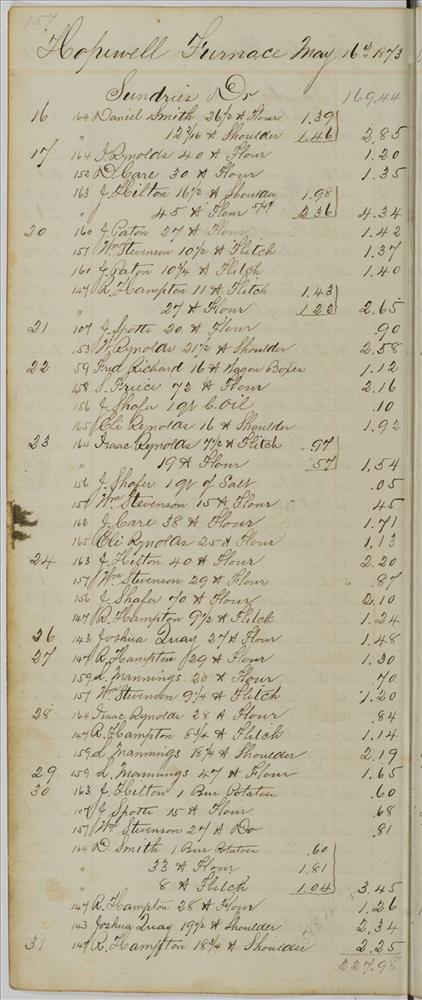 157
Hopewell Furnace May 16th 1873
Sundries Dr 169.44
16 164 Daniel Smith 26 1/2 # Flour 1.39
" 12 3/16 # Shoulder 1.46 2.85
17 164 J. Rynolds 40 # Flour 1.20
152 D. Care 30 # Flour 1.35
163 J. Hilton 16 1/2 # Shoulder 1.98
" 45 # Flour 2.36 4.34
20 160 J. Gaton 27 # Flour 1.42
157 Wm Stevenson 10 1/2 # Flitch 1.37
160 J. Gaton 10 3/4 # Flitch 1.40
147 R. Hampton 11 # Flitch 1.43
" 27 # Flour 1.22 2.65
21 107 J. Spotts 20 # Flour .90
153 Rynolds 21 1/2 # Shoulder 2.58
22 59 Fred Richard 16 # Wagon Boxes 1.12
158 S. Frice 72 # Flour 2.16
156 J. Shafer 1 qt C. Oil .10
165 Eli Rynolds 16 # Shoulder 1.92
23 164 Isaac Rynolds 7 1/2 # Flitch .97
" 19 # Flour .57 1.54
156 J. Shafer 1 qt of Salt .05
157 Wm Stevenson 15 # Flour .45
162 J. Care 38 # Flour 1.71
165 Eli Rynolds 25 # Flour 1.13
24 163 J. Hilton 40 # Flour 2.20
157 Wm Stevenson 29 # Flour .87
156 J. Shafer 70 # Flour 2.10
147 R. Hampton 9 1/2 # Flitch 1.24
26 143 Joshua Quay 27 # Flour 1.48
27 147 R. Hampton 29 # Flour 1.30
159 L. Mannings 20 # Flour .70
157 Wm Stevenson 9 1/4 # Flitch 1.20
28 164 Isaac Rynolds 28 # Flour .84
147 R. Hampton 8 3/4 # Flitch 1.14
159 L. Mannings 18 1/4 # Shoulder 2.19
29 159 L. Mannings 47 # Flour 1.65
30 163 J. Hilton 1 Bus Potatoes .60
107 J. Spotts 15 # Flour .68
157 Wm Stevenson 27 # Do .81
164 D. Smith 1 Bus Potatoes .60
" 33 # Flour 1.81
" 8 # Flitch 1.04 3.45
147 R. Hampton 28 # Flour 1.26
143 Joshua Quay 19 1/2 # Shoulder 2.34
31 147 R. Hampton 18 3/4 # Shoulder 2.25
227.98